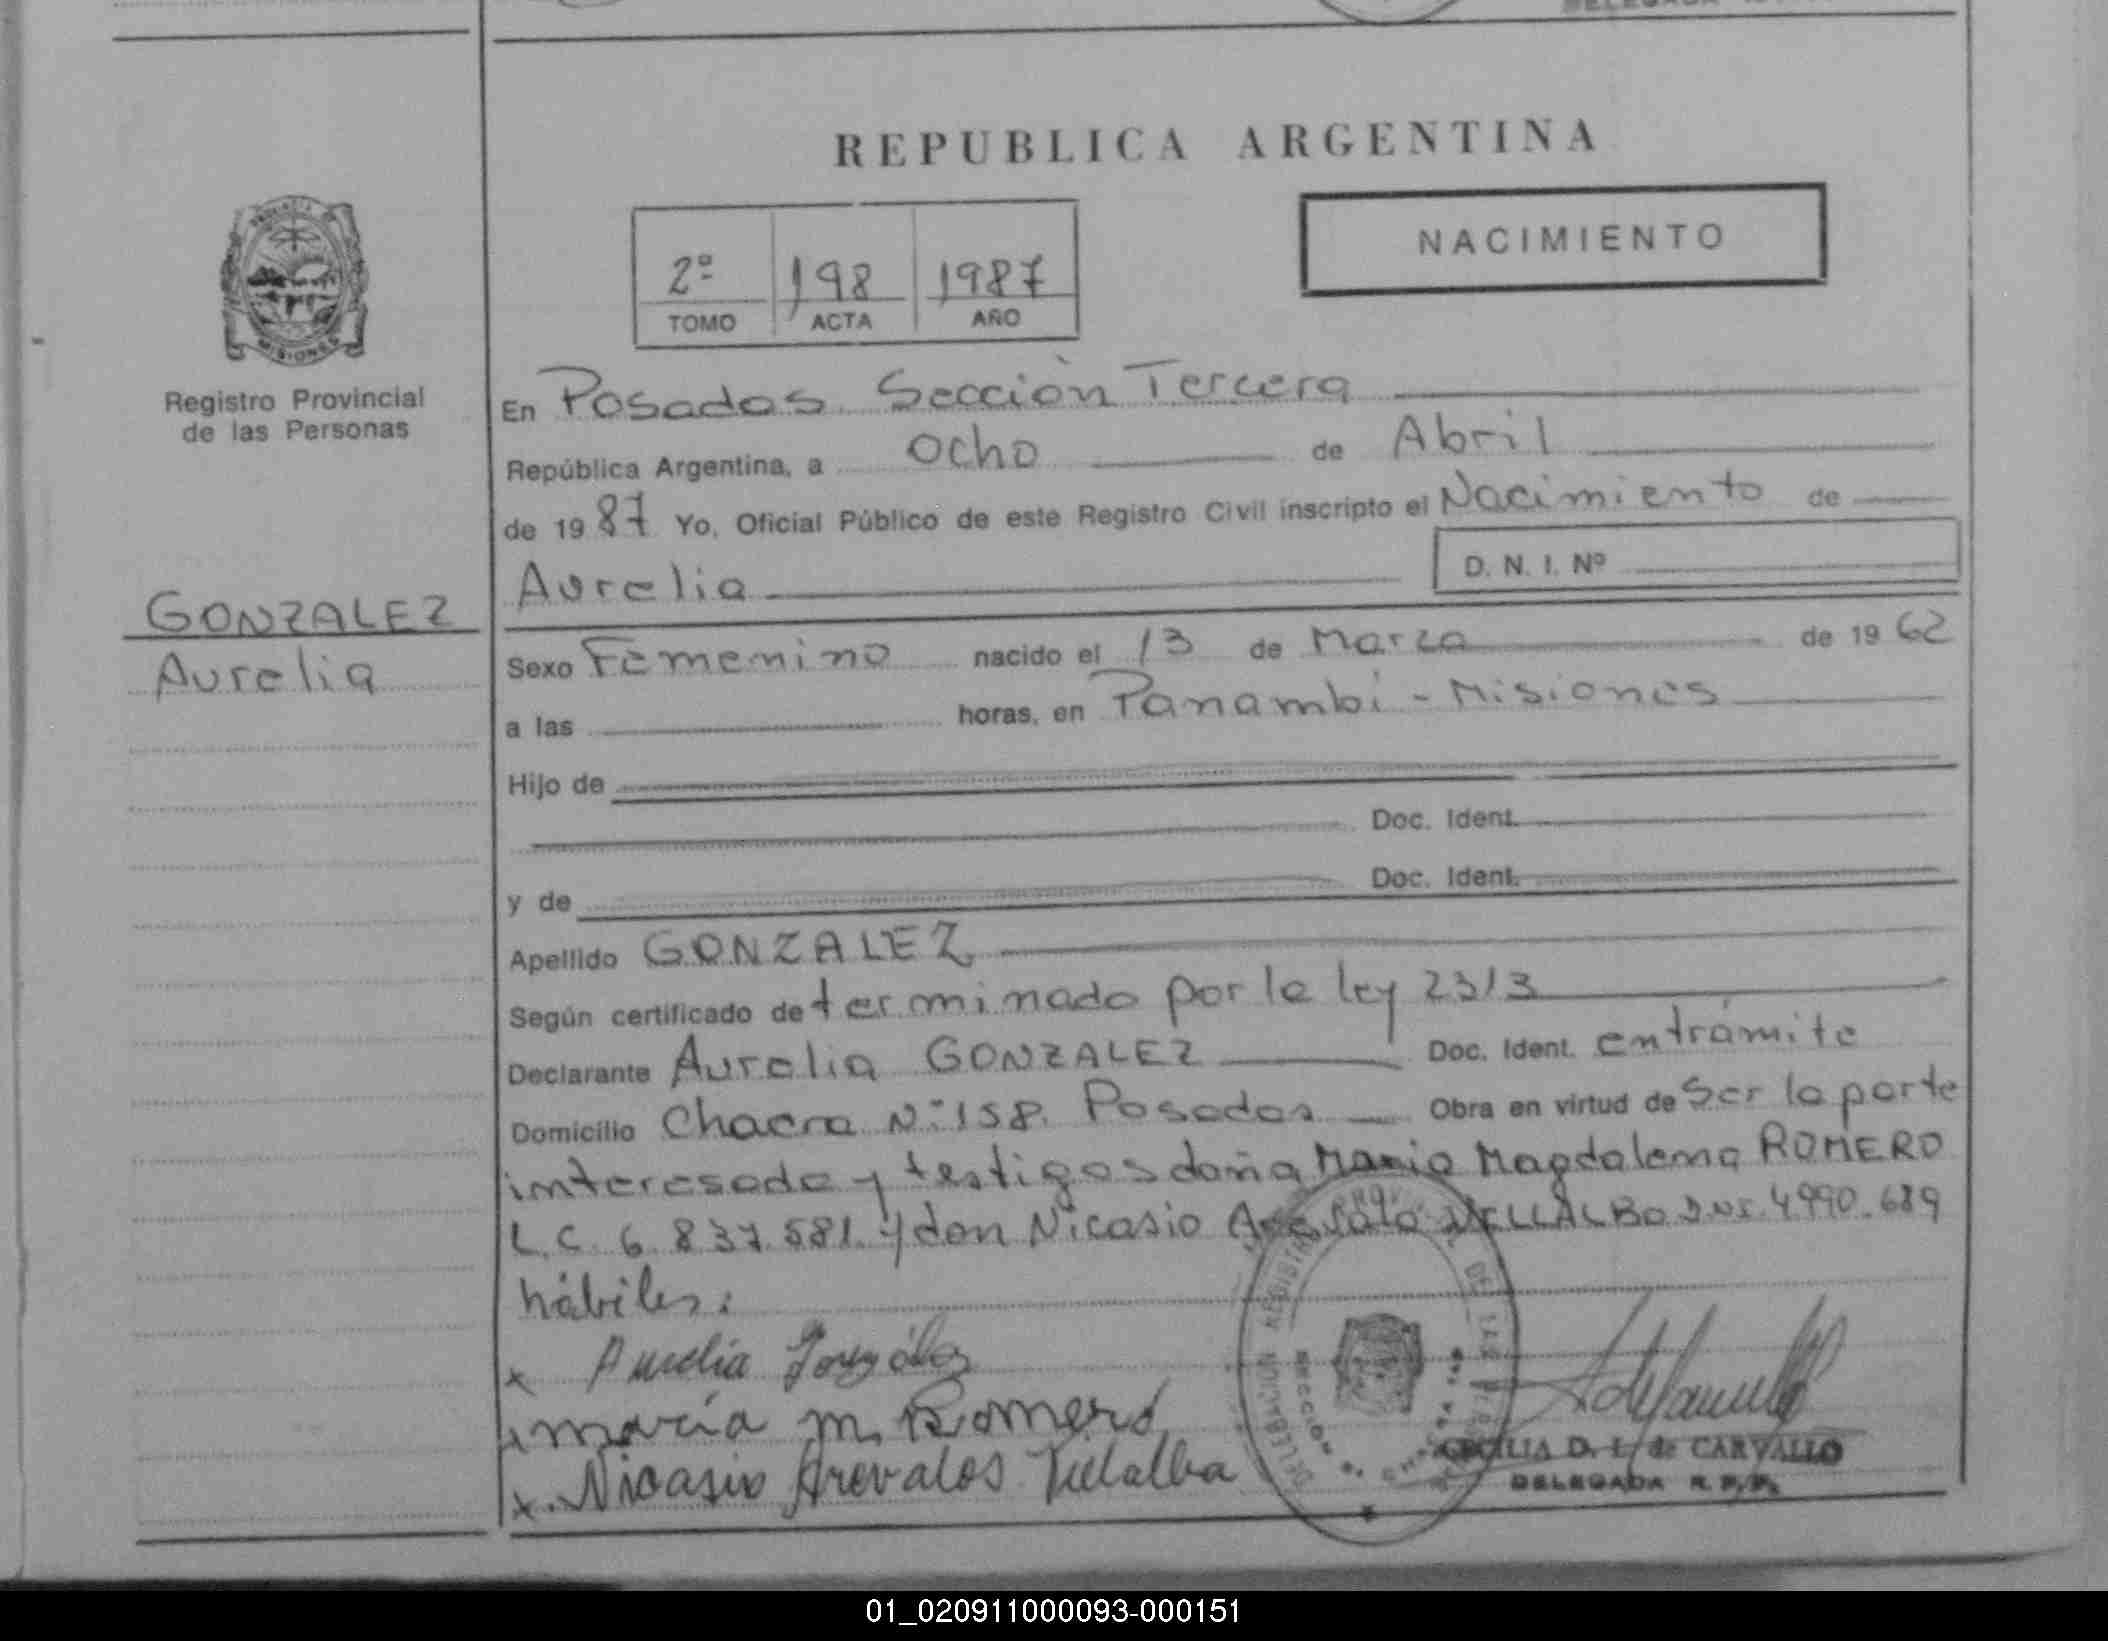 REPUBLICA ARGENTINA
NACIMIENTO
2º 198 1987
TOMO ACTA AÑO
MISIONES
Registro Provincial
de las Personas
GONZALEZ
Aurelia
En Posadas Sección Tercera
República Argentina, a Ocho de Abril
de 1987 Yo, Oficial Público de este Registro Civil inscripto el Nacimiento de
Aurelia
D. N. I. Nº
Sexo Femenino nacido el 13 de Marzo de 1962
a las horas, en Panambí - Misiones
Hijo de
Doc. Ident.
y de Doc. Ident.
Apellido GONZALEZ
Según certificado determinado por la ley 2313
Declarante Aurelia GONZALEZ Doc. Ident. entrámite
Domicilio Chacra Nº 158. Posadas Obra en virtud de Ser la parte
interesada y testigos doña Maria Magdalena ROMERO
L.C. 6.837.581 y don Nicasio D.N.I. 4.990.689
hábiles:
x Aurelia González
maría m. Romero
x. Nicasio Arevalos Villalba
CECILIA D. L. de CARVALLO
DELEGADA R. P. P.
01_020911000093-000151